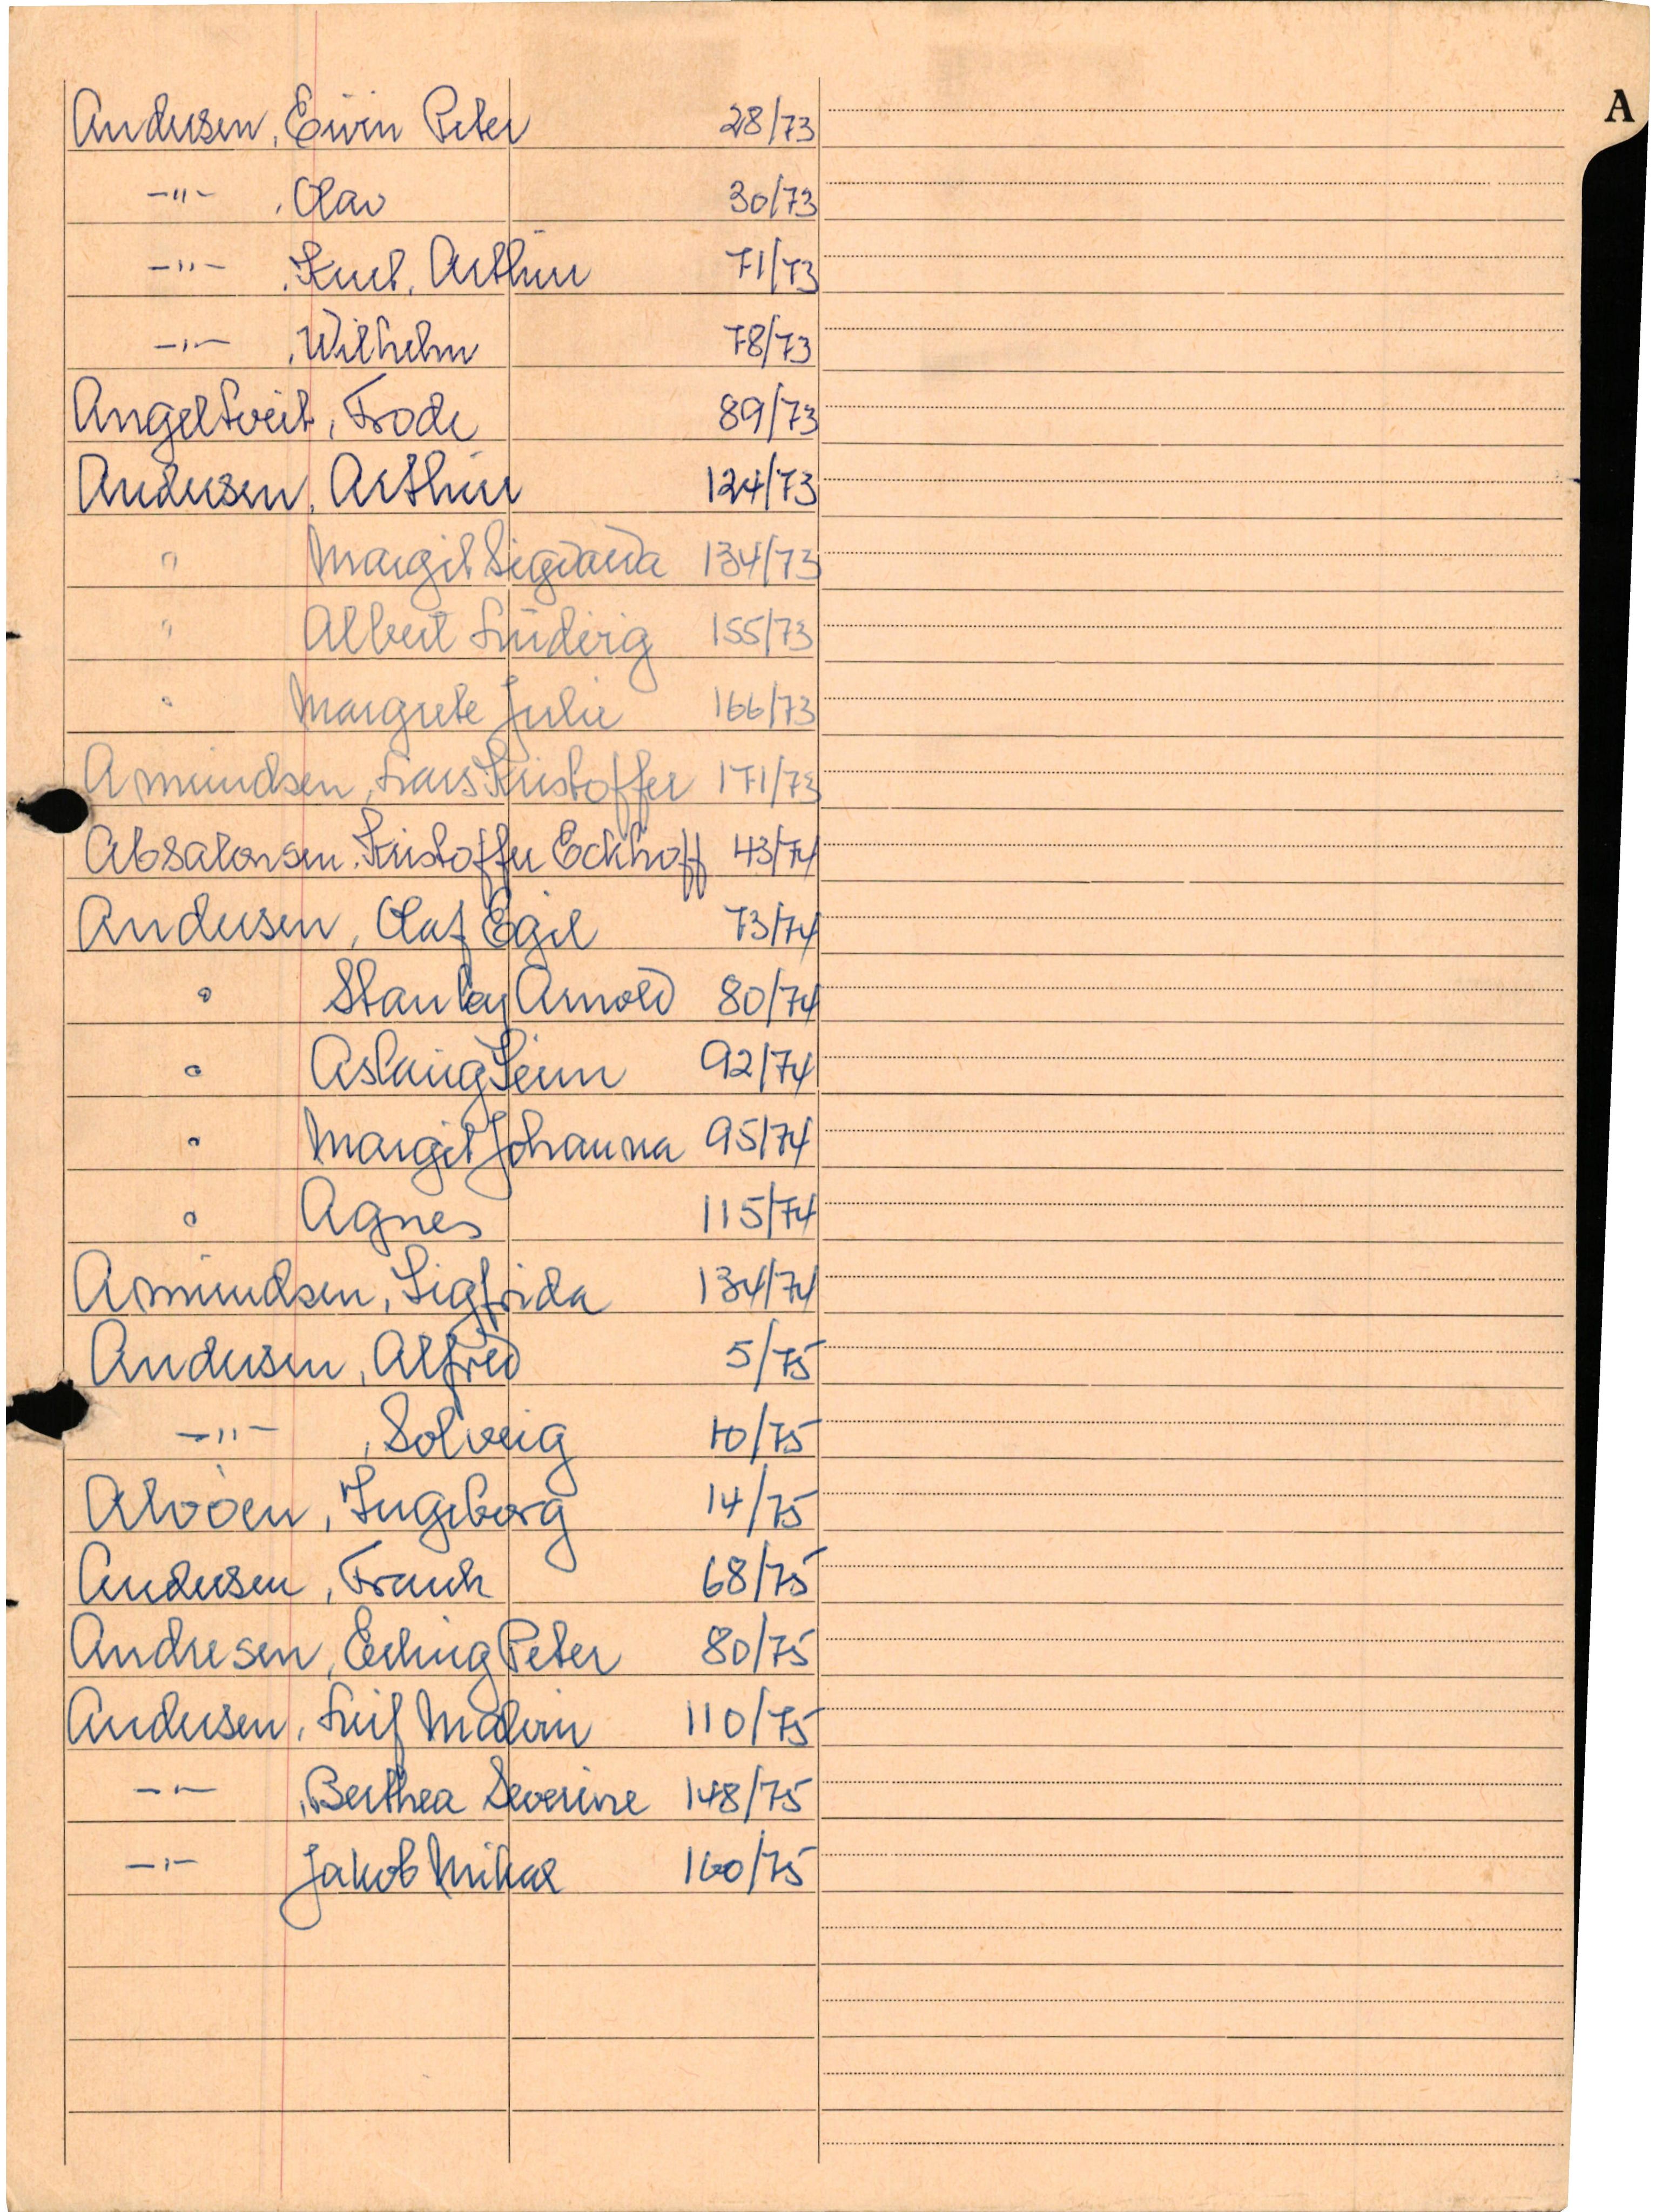 A
Andersen, Eivin Peter 28/73
-"- , Olav 30/73
-"- , Kurt, Arthur 71/73
-"- , Wilhelm 78/73
Angeltveit, Frode 89/73
Andersen, Arthur 124/73
" Margit Sigvarda 134/73
" Albert Ludvig 155/73
" Margrete Julie 166/73
Amundsen, Lars Kristoffer 171/73
Absalonsen, Kristoffer Eckhoff 43/74
Andersen, Olaf Egil 73/74
" Stanley Arnold 80/74
" Aslaug 92/74
" Margit Johanna 95/74
" Agnes 115/74
Amundsen, Sigfrida 134/74
Andersen, Alfred 5/75
-"- , Solveig 10/75
Alvøen, Ingeborg 14/75
Andersen, Frank 68/75
Andresen, Erling Peter 80/75
Andersen, Leif Malvin 110/75
-"- , Berthea Severine 148/75
-"- Jakob Mikal 160/75